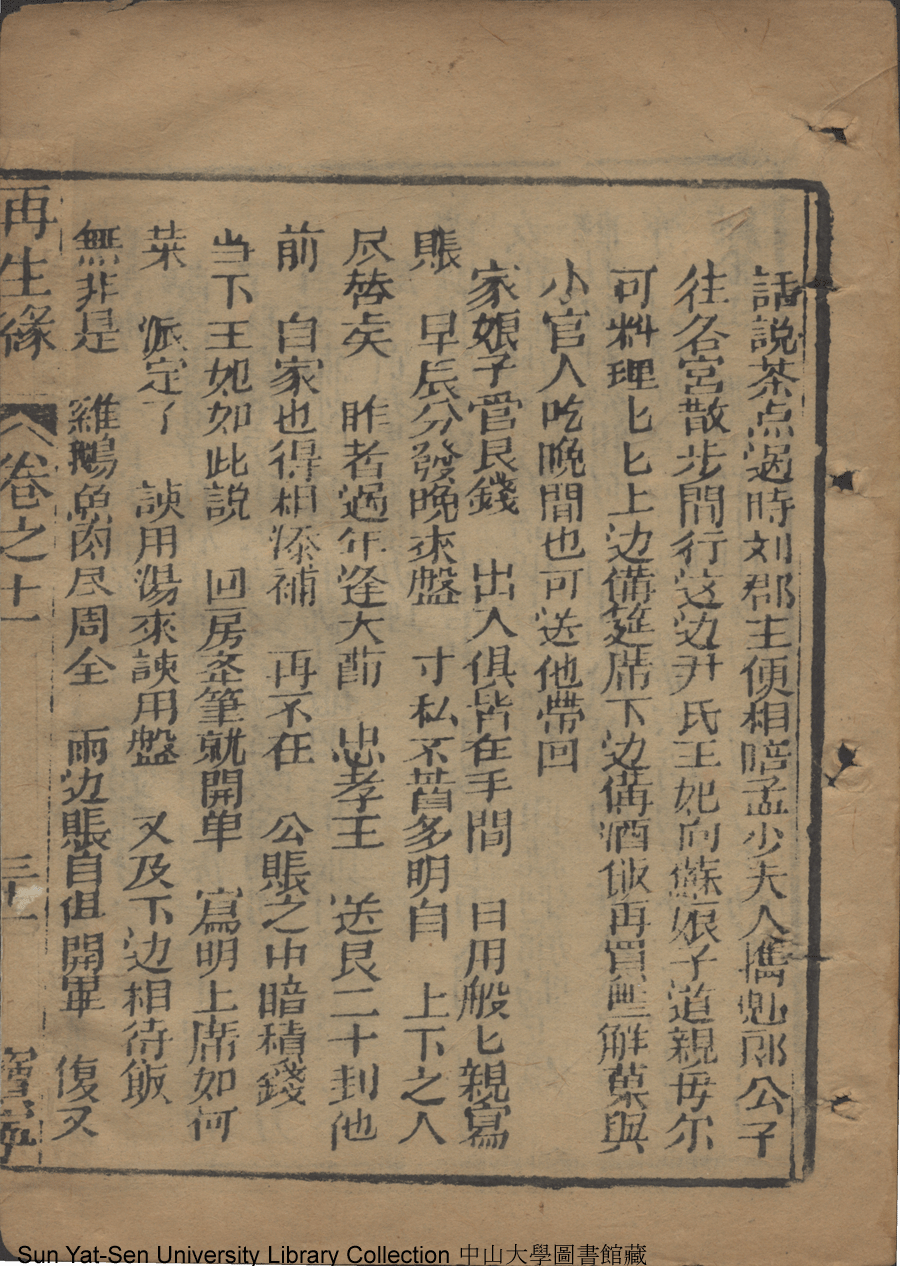 話說茶点過時刘郡主便相陪孟少夫人携魁郎公子
往各宮散步閒行这边尹氏王妃向蘇娘子道親毋尔
可料理匕匕上边備筵席下边備酒飯再買些鮮菓與
小官人吃晚間也可送他帶回
家娘子管艮錢 出入俱皆在手間 日用般匕親寫
賬 早辰分發晚來盤 寸私不昔多明白 上下之人
尽替矣 昨者過年逢大節 忠孝王 送艮二十封他
前 自家也得相添補 再不在 公賬之中暗積錢
当下王妃如此説 回房秉筆就開单 寫明上席如何
菜 派定了 諫用湯來諫用盤 又及下边相待飯
無非是 雞鵝魚肉尽周全 兩边賬自俱開畢 復又
再生緣
卷之十一
三十一
Sun Yat-Sen University Library Collection 中山大學圖書館藏